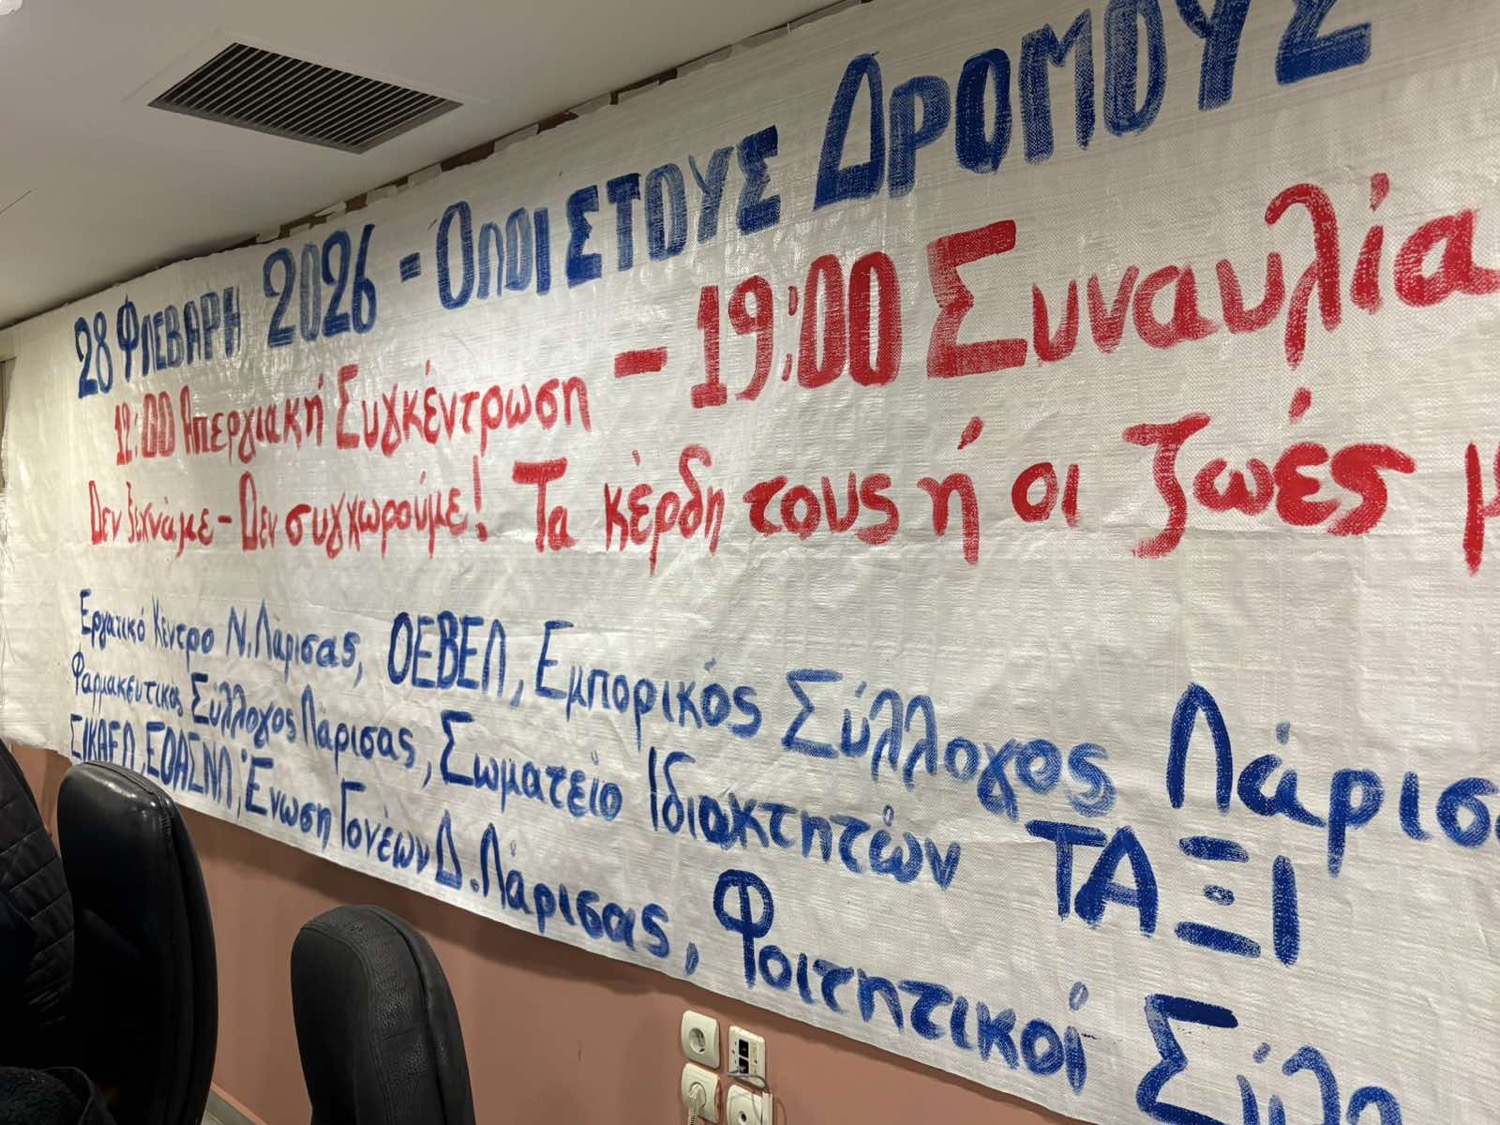 28 ΦΛΕΒΑΡΗ 2026 - ΟΛΟΙ ΣΤΟΥΣ ΔΡΟΜΟΥΣ
12:00 Απεργιακή Συγκέντρωση - 19:00 Συναυλία
Δεν ξεχνάμε - Δεν συγχωρούμε! Τα κέρδη τους ή οι ζωές μ
Εργατικό Κέντρο Ν. Λάρισας, ΟΕΒΕΛ, Εμπορικός Σύλλογος Λάρισα
Φαρμακευτικός Σύλλογος Λάρισας, Σωματείο Ιδιοκτητών ΤΑΞΙ
ΣΙΚΑΕΛ, ΕΟΑΣΝΛ, Ένωση Γονέων Δ. Λάρισας, Φοιτητικοί Σύλλ